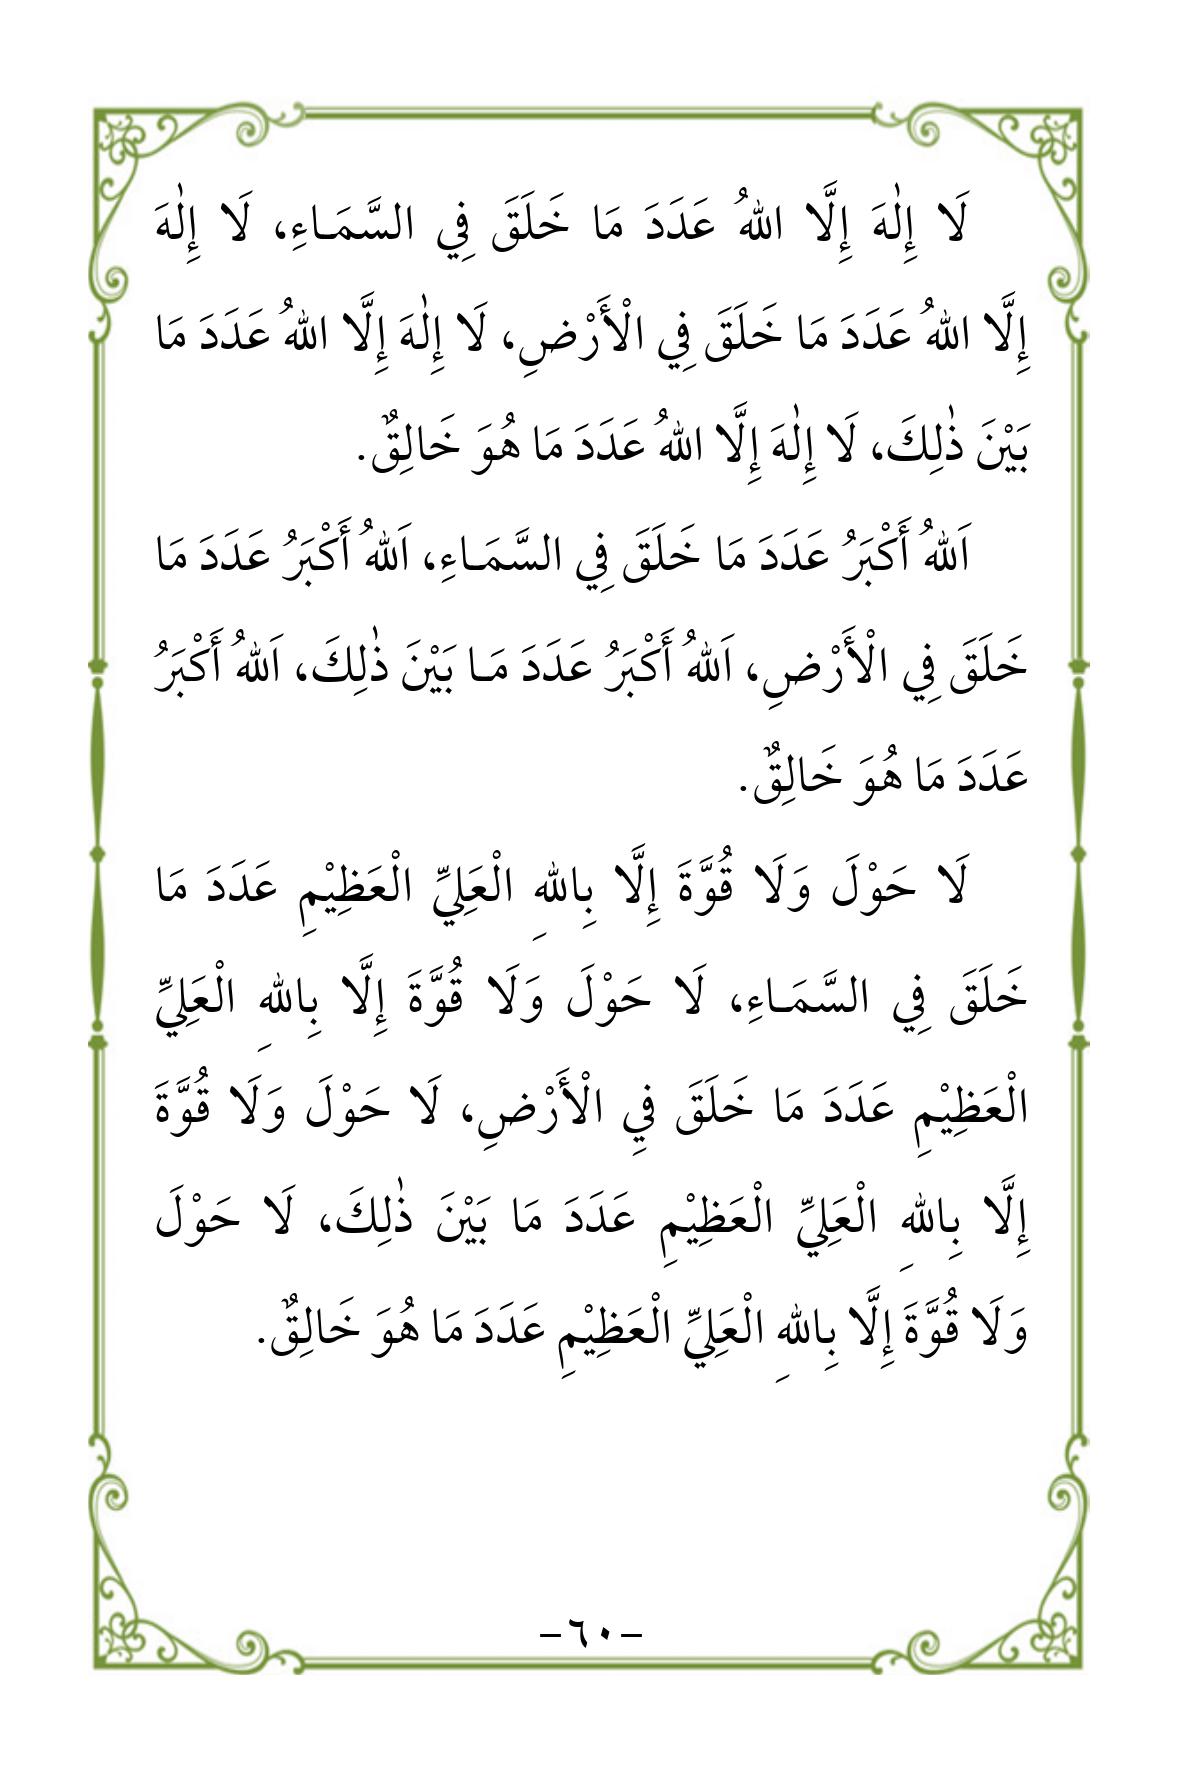 لَا إِلٰهَ إِلَّا اللهُ عَدَدَ مَا خَلَقَ فِي السَّمَـاءِ، لَا إِلٰهَ
إِلَّا اللهُ عَدَدَ مَا خَلَقَ فِي الْأَرْضِ، لَا إِلٰهَ إِلَّا اللهُ عَدَدَ مَا
بَيْنَ ذٰلِكَ، لَا إِلٰهَ إِلَّا اللهُ عَدَدَ مَا هُوَ خَالِقٌ.
اَللهُ أَكْبَرُ عَدَدَ مَا خَلَقَ فِي السَّمَـاءِ، اَللهُ أَكْبَرُ عَدَدَ مَا
خَلَقَ فِي الْأَرْضِ، اَللهُ أَكْبَرُ عَدَدَ مَـا بَيْنَ ذٰلِكَ، اَللهُ أَكْبَرُ
عَدَدَ مَا هُوَ خَالِقٌ.
لَا حَوْلَ وَلَا قُوَّةَ إِلَّا بِاللهِ الْعَلِيِّ الْعَظِيْمِ عَدَدَ مَا
خَلَقَ فِي السَّمَـاءِ، لَا حَوْلَ وَلَا قُوَّةَ إِلَّا بِاللهِ الْعَلِيِّ
الْعَظِيْمِ عَدَدَ مَا خَلَقَ فِي الْأَرْضِ، لَا حَوْلَ وَلَا قُوَّةَ
إِلَّا بِاللهِ الْعَلِيِّ الْعَظِيْمِ عَدَدَ مَا بَيْنَ ذٰلِكَ، لَا حَوْلَ
وَلَا قُوَّةَ إِلَّا بِاللهِ الْعَلِيِّ الْعَظِيْمِ عَدَدَ مَا هُوَ خَالِقٌ.
–٦٠–